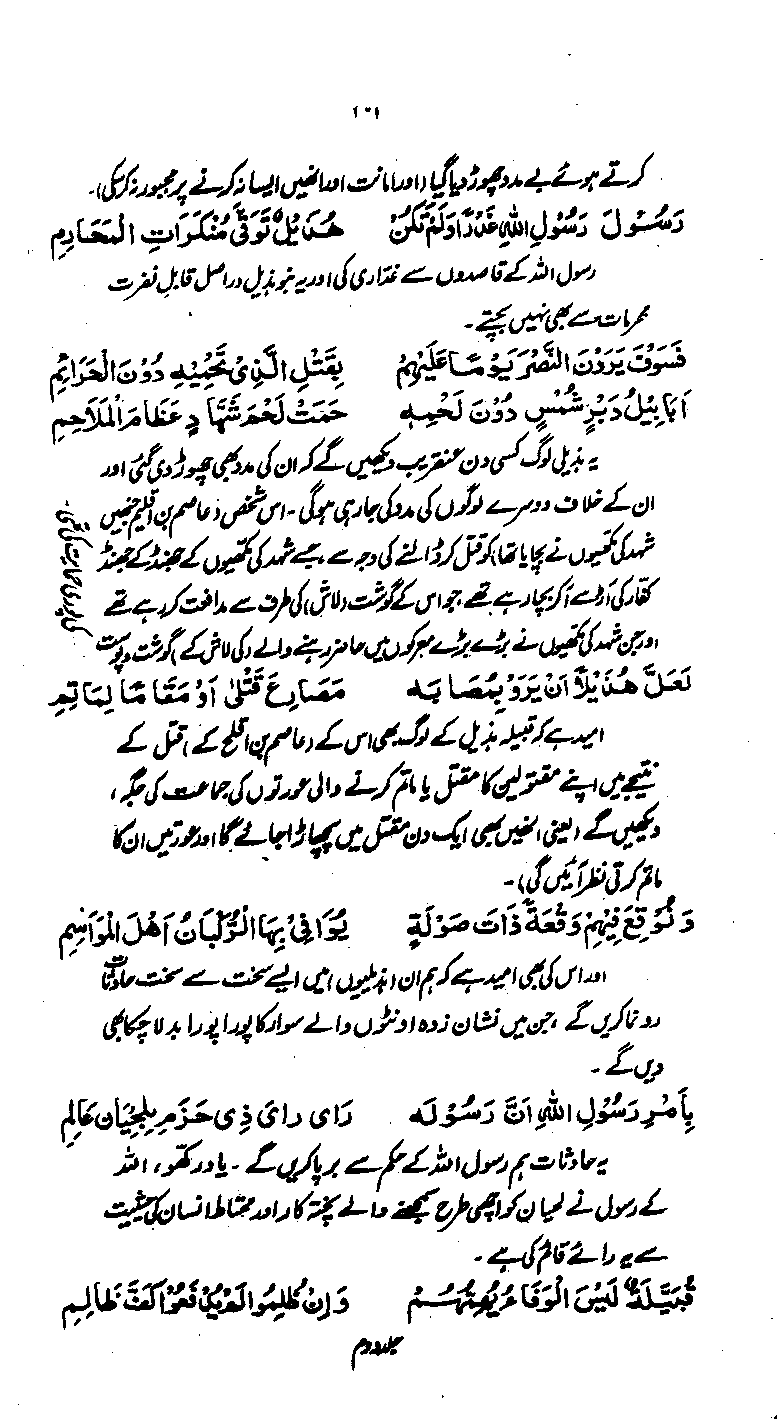 ۱۰۱
کرتے ہوئے بے مدد چھوڑ دیا گیا (اور امانت اور انھیں ایسا نہ کرنے پر مجبور نہ کر سکی)۔
رَسُوْلَ رَسُوْلِ اللهِ غَدْرًا وَلَمْ تَكُنْ هُذَيْلٌ تَوَقّٰى مُنْكَرَاتِ الْمَحَارِمِ
رسول اللہ کے قاصدوں سے غداری کی اور یہ بنو ہذیل دراصل قابل نفرت
محرمات سے بھی نہیں بچتے۔
فَسَوْفَ يَرَوْنَ النَّصْرَ يَوْمًا عَلَيْهِمْ بِقَتْلِ الَّذِيْ تَحْمِيْهِ دُوْنَ الْحَرَائِمِ
اَبَابِيْلُ دَبْرٍ شُمْسٍ دُوْنَ لَحْمِهٖ حَمَتْ لَحْمَ شَهَّادٍ عِظَامَ الْمَلَاحِمِ
یہ ہذیلی لوگ کسی دن عنقریب دیکھیں گے کہ ان کی مدد بھی چھوڑ دی گئی اور
ان کے خلاف دوسرے لوگوں کی مدد کی جا رہی ہوگی۔ اس شخص (عاصم بن اقلح جنھیں
شہد کی مکھیوں نے بچایا تھا) کو قتل کر ڈالنے کی وجہ سے جسے شہد کی مکھیوں کے جھنڈ کے جھنڈ
کفار کی آڑ سے آ کر بچا رہے تھے جو اس کے گوشت (لاش) کی طرف سے مدافعت کر رہے تھے
اور جن شہد کی مکھیوں نے بڑے بڑے معرکوں میں حاضر رہنے والے (کی لاش کے) گوشت و پوست
کی پوری حمایت کی تھی۔
لَعَلَّ هُذَيْلًا اَنْ يَرَوْ بِمُصَابِهٖ مَصَارِعَ قَتْلٰى اَوْ مَقَامًا لِمَاتِمِ
امید ہے کہ قبیلہ ہذیل کے لوگ بھی اس کے (عاصم بن اقلح کے) قتل کے
نتیجے میں اپنے مقتولین کا مقتل یا ماتم کرنے والی عورتوں کی جماعت کی جگہ،
دیکھیں گے (یعنی انھیں بھی ایک دن مقتل میں پچھاڑا جائے گا اور عورتیں ان کا
ماتم کرتی نظر آئیں گی)۔
وَنُوْقِعَ فِيْهِمْ وَقْعَةً ذَاتَ صَوْلَةٍ يُوَافِيْ بِهَا الرُّكْبَانُ اَهْلَ الْمَوَاسِمِ
اور اس کی بھی امید ہے کہ ہم ان (ہذیلیوں) میں ایسے سخت سے سخت حادثات
رونما کریں گے جن میں نشان زدہ اونٹوں والے سوار کا پورا پورا بدلا چکا بھی
دیں گے۔
بِاَمْرِ رَسُوْلِ اللهِ اَنَّ رَسُوْلَهٗ رَاٰى رَاىَ ذِى حَزْمٍ بِلِحْيَانَ عَالِمِ
یہ حادثات ہم رسول اللہ کے حکم سے برپا کریں گے۔ یاد رکھو، اللہ
کے رسول نے لحیان کو اچھی طرح سمجھنے والے پختہ کار اور محتاط انسان کی حیثیت
سے یہ رائے قائم کی ہے۔
قُبَيِّلَةٌ لَيْسَ الْوَفَاءُ يُهِمُّهُمْ وَاِنْ ظُلِمُوْا لَمْ يَدْفَعُوْا كَفَّ ظَالِمِ
جلد دوم